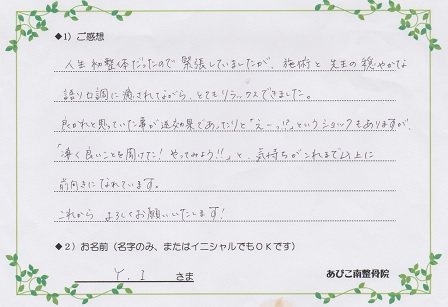 ◆1）ご感想
人生初整体だったので緊張していましたが、施術と先生の穏やかな
語り口調に癒されながら、とてもリラックスできました。
良かれと思っていた事が逆効果であったりと「えーっ!?」というショックもありますが、
「凄く良いことを聞けた！やってみよう!!」と、気持ちがこれまで以上に
前向きになれています。
これから よろしくお願いいたします！
◆2）お名前（名字のみ、またはイニシャルでもOKです）
Y．I さま
あびこ南整骨院